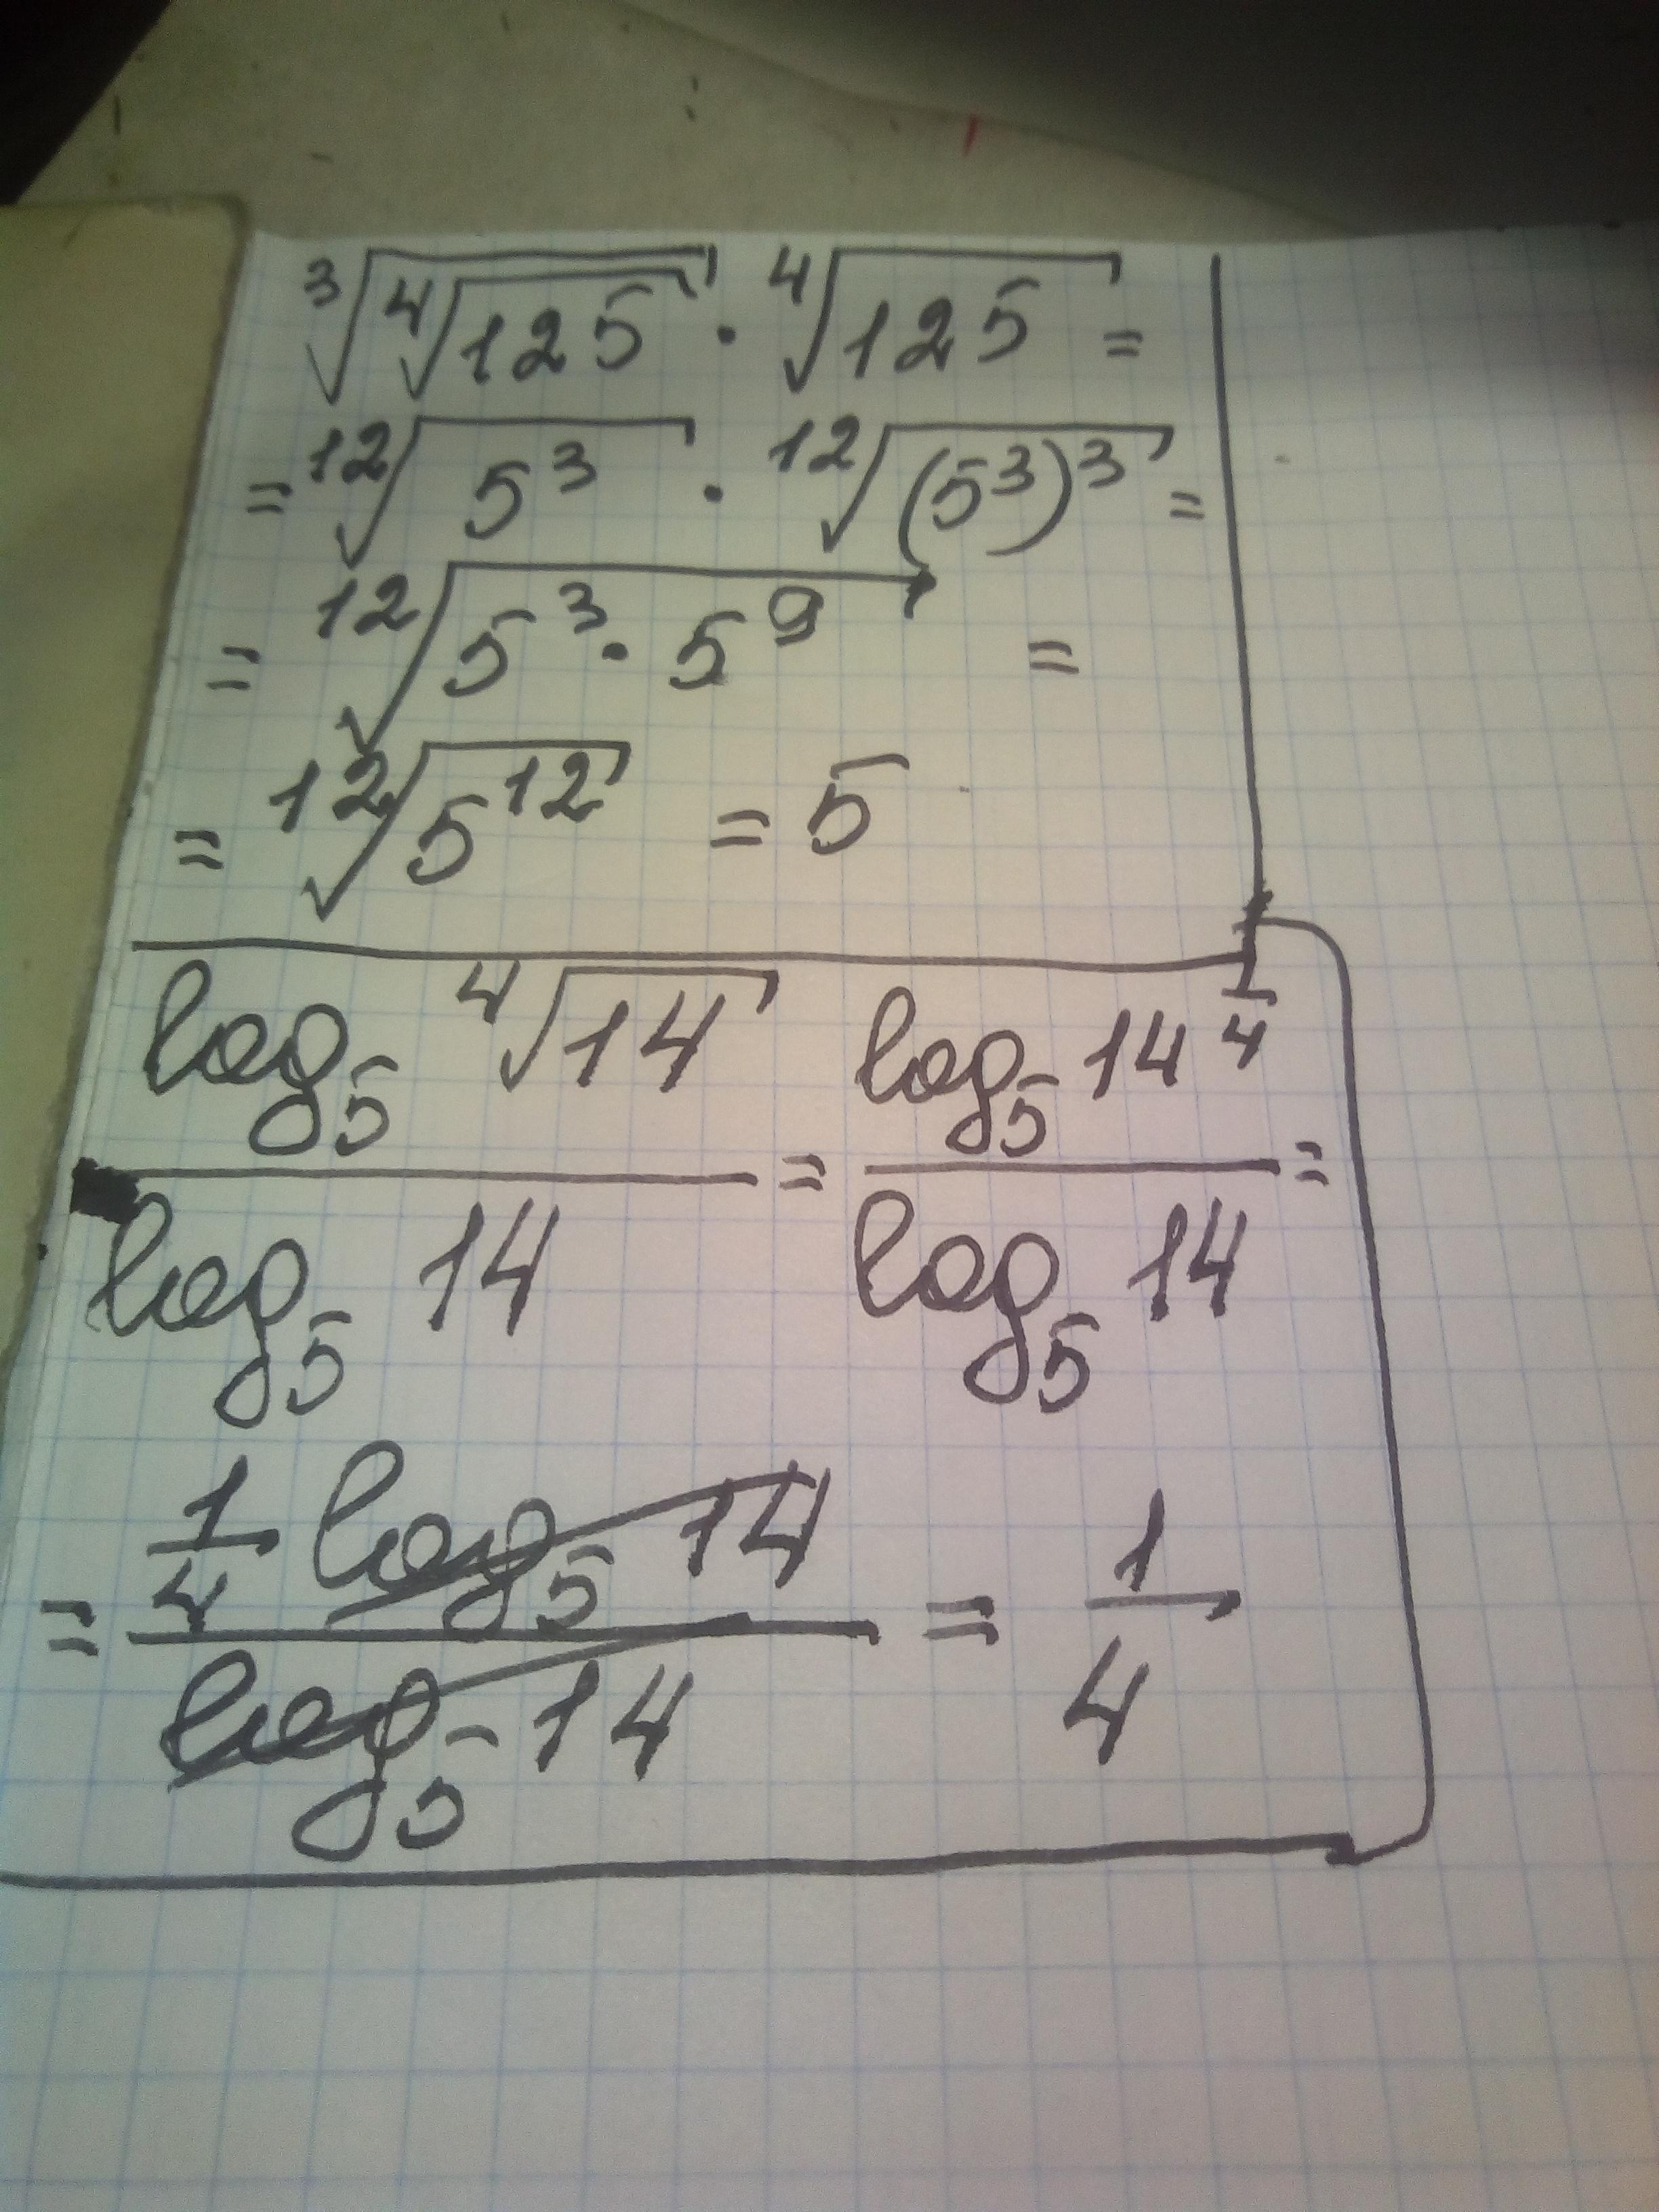 ∛(∜125) · ∜125 =
= ¹²√(5³) · ¹²√((5³)³) =
= ¹²√(5³ · 5⁹) =
= ¹²√(5¹²) = 5
log₅ ∜14 / log₅ 14 = log₅ 14^(1/4) / log₅ 14 =
= 1/4 log₅ 14 / log₅ 14 = 1/4